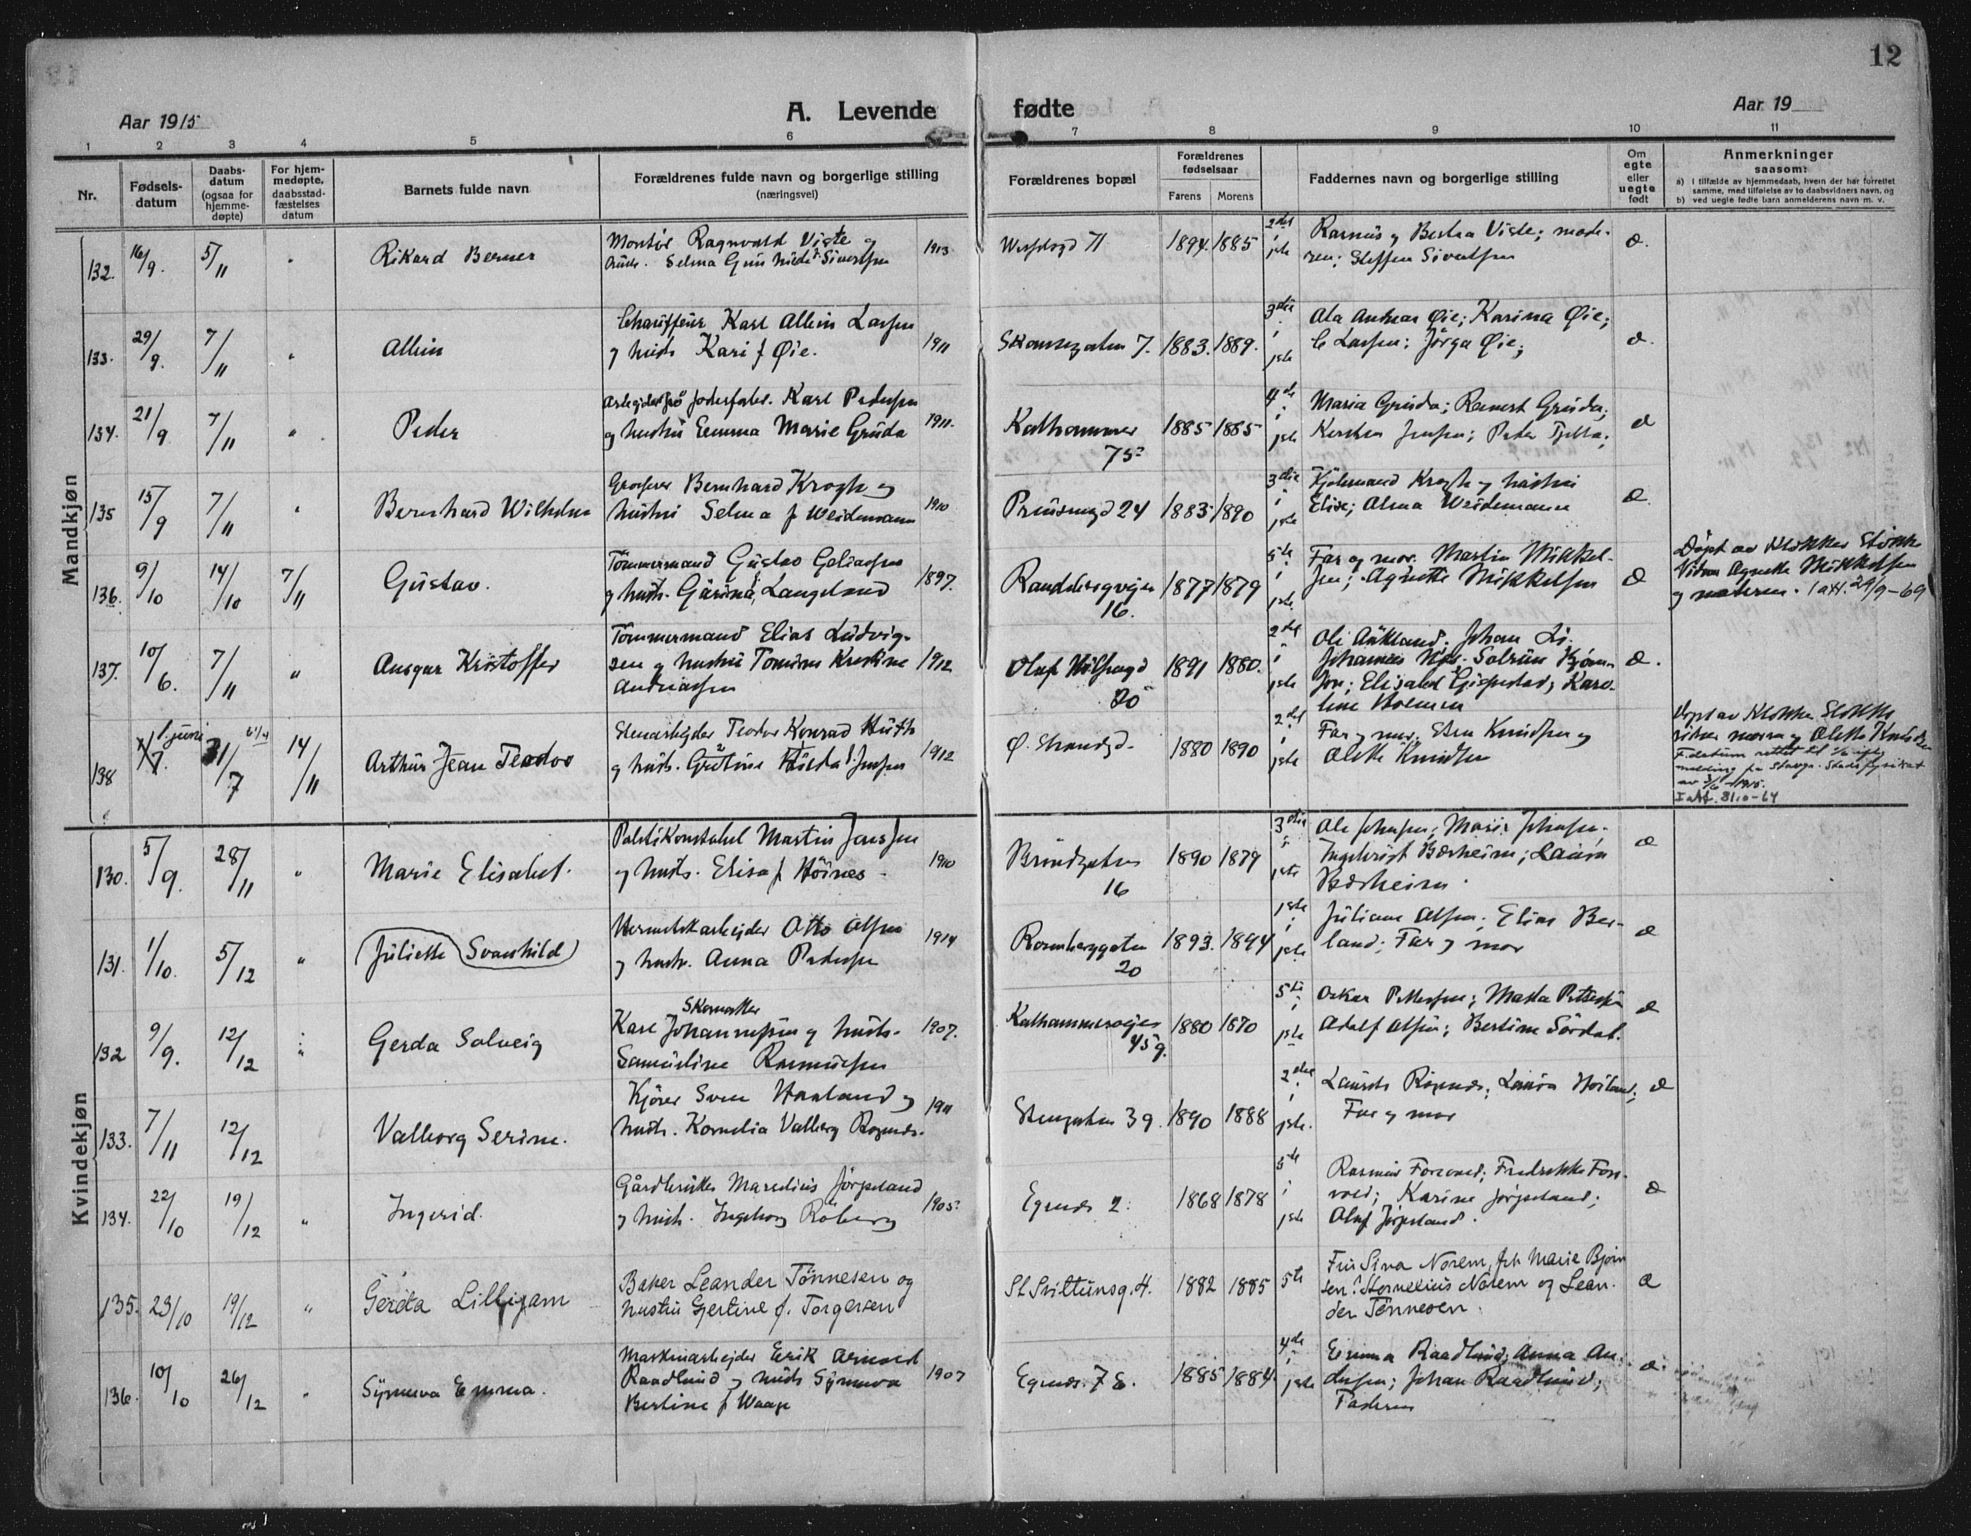 12
Aar 1915
A. Levende fødte
Aar 19
1 2 3 4 5 6 7 8 9 10 11
Nr.
Fødsels-
datum
Daabs-
datum
(ogsaa for
hjemme-
døpte)
For hjem-
medøpte,
daabsstad-
fæstelses
datum
Barnets fulde navn
Forældrenes fulde navn og borgerlige stilling
(næringsvei)
Forældrenes bopæl
Forældrenes
fødselsaar
Farens Morens
Faddernes navn og borgerlige stilling
Om
egte
eller
uegte
født
Anmerkninger
saasom:
a) i tilfælde av hjemmedaab, hvem der har forrettet
samme, med tilføielse av to daabsvidners navn, og
b) ved uegte fødte barn anmelderens navn m. v.
Mandkjøn
132. 16/9. 5/11 " Rikard Berner
Montør Ragnvald Viste og
hustr. Selma Sivertsen
1913
71 1894. 1885
2det i 1ste
Rasmus og Bertha Viste; mode-
ren; Steffen Sivertsen
æ.
133. 29/9. 7/11 " Allein
Chauffeur Karl Allein Larsen
og hustr. Kari f Øie.
1911
Skansegaten 7. 1883. 1889.
3die i 1ste
Ola Andreas Øie; Karina Øie;
C Larsen; Jørga Øie;
æ.
134. 21/9 7/11 " Peder
Karl Pedersen
og hustru Emma Marie Gruda
1911.
Kalhammer
75 1885 1885
4de i 1ste
Maria Gruda; Gruda;
Jensen; Peder Tjelta;
æ
135 15/9 7/11 " Bernhard Wilhelm
Grosserer Bernhard Krogh og
hustru Selma f Weidemann
1910
Prinsensgd 24 1883 1890
3die i 1ste
Krogh og hustru
Elise; Alma Weidemann
æ.
136. 9/10 14/10 7/11 Gustav.
Tømmermand Gustav Eliassen
og hustr. Gurina Langeland
1897.
Randabergveien
16. 1877 1879
5te i 1ste
Far og mor. Martin Mikkel-
sen; Agnethe Mikkelsen
æ
Døpt av Klokker Stokke
Vidner Agnethe Mikkelsen
og moderen. 1 att. 29/9-69
137. 10/6. 7/11 " Ansgar Kristoffer
Tømmermand Elias Ludvig-
sen og hustru Tomine Kristine
Andreassen
1912
Olaf
20 1891 1880.
2det i 1ste
Ole Aukland. Johan
Johannes Solrun
Elisabet Karo-
line
æ.
138 7/7. 1 juni 31/7 14/11 Arthur Jean Teodor
Stenarbeider Teodor Konrad Huth
og hustr. Gutine Hulda Jensen
1912
Ø. Strandgd. 1880 1890
2det i 1ste
Far og mor. Knudsen og
Olette Knudsen
Døpt av Klokker Stokke
vidner moren og Olette Knudsen
F.datum rettet til 1/6 ifølge
melding fra Stavgr. Stadsfysikat
1915.
1 att. 3/10-64
Kvindekjøn
130. 5/9. 28/11 " Marie Elisabet.
Politikonstabel Martin Janssen
og hustr. Elisa f Høines.
1910
16 1890 1879
3die i 1ste
Ole Johnsen; Marie Johnsen.
Ingebrigt Bærheim; Laura
Bærheim.
æ
131. 1/10. 5/12 " Juliette Svanhild
Hermetikarbeider Otto Olsen
og hustr. Anna Pedersen
1914
Rosenberggaten
20 1893. 1894
1ste i 1ste
Juliane Olsen; Elias Ber-
land; Far og mor
æ
132 9/9. 12/12 " Gerda Solveig
Skomaker
Karl Johannessen og hustr.
Samueline Rasmussen
1907.
Kalhammerveien
45 g. 1880 1870
5te i 1ste
Oskar Pettersen; Marta Pettersen
Adolf Olsen; Bertine Sørdal.
æ
133. 7/11 12/12 Valborg Serine.
Kjører Sven Haaland og
hustr. Kornelia Valborg Rognes.
1911
Stengaten 39. 1890 1888
2det i 1ste.
Laurits Rognes; Laura Høiland;
Far og mor
æ
134. 22/10 19/12 " Ingerid.
Gårdbruker Maredius Jørpeland
og hustr. Ingeborg Roberg
1905.
Egenes 2. 1868 1878
5te i 1ste
Rasmus Forsvold; Fredrikke Fors-
vold; Karine Jørpeland;
Olaf Jørpeland.
æ
135. 23/10 19/12 " Gerda Lilligam
Baker Leander Tönnesen og
hustru Gertine f. Torgersen
St Svithunsg. 4. 1882 1885
5te
Fru Sina Norem, frk Marie Bjørn
sen. Kornelius Norem og Lean-
der Tönnesen
æ
136. 10/10 26/12 " Synnøva Emma.
Maskinarbeider Erik Arnved
Raadlund og hustr Synnøva
Bertine f Waage
1907
Egenes. 78. 1885 1884.
4de i 1ste
Emma Raadlund; Anna An-
dersen; Johan Raadlund;
Faderen
æ.